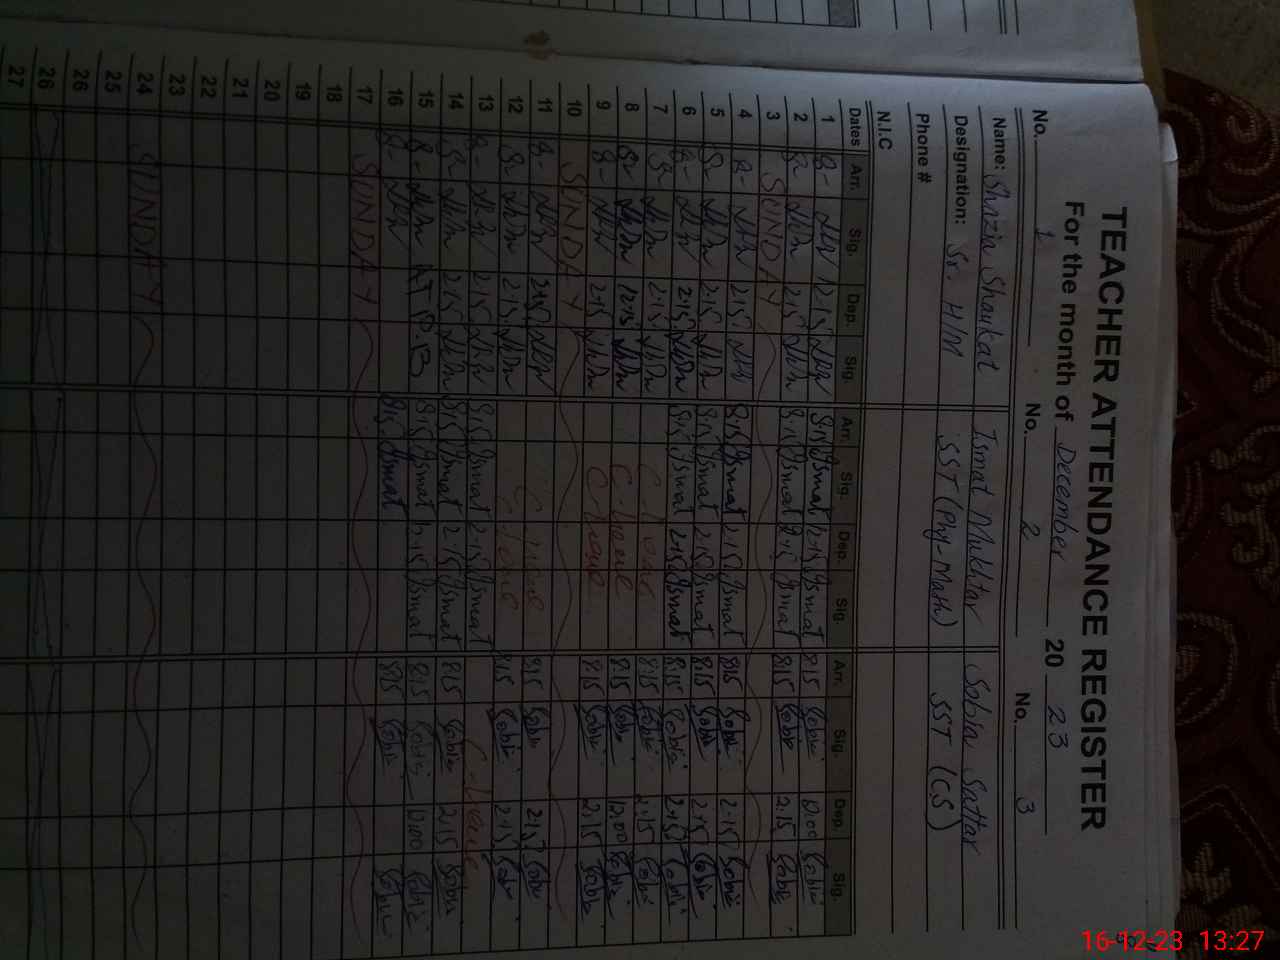 TEACHER ATTENDANCE REGISTER
For the month of December 20 23
No. 1 No. 2 No. 3
Name: Shazia Shaukat Ismat Mukhtar Sobia Sattar
Designation: Sr. H/M SST (Phy-Math) SST (CS)
Phone #
N.I.C
Dates Arr. Sig. Dep. Sig. Arr. Sig. Dep. Sig. Arr. Sig. Dep. Sig.
1 8- 12-15 8:15 Ismat 12:15 Ismat 8:15 Sobia 12:00 Sobia
2 8- 2:15 8:15 Ismat 2:15 Ismat 8:15 Sobia 2:15 Sobia
3 SUNDAY
4 8- 2:15 8:15 Ismat 2:15 Ismat 8:15 Sobia 2:15 Sobia
5 8- 2:15 8:15 Ismat 2:15 Ismat 8:15 Sobia 2:15 Sobia
6 8- 2:15 8:15 Ismat 2:15 Ismat 8:15 Sobia 2:15 Sobia
7 8- 2:15 C-leave 8:15 Sobia 2:15 Sobia
8 8- 12:15 C-leave 8:15 Sobia 12:00 Sobia
9 8- 2:15 C-leave 8:15 Sobia 2:15 Sobia
10 SUNDAY
11 8- 2:15 C-leave 8:15 Sobia 2:15 Sobia
12 8- 2:15 C-leave 8:15 Sobia 2:15 Sobia
13 8- 2:15 8:15 Ismat 2:15 Ismat C-leave
14 8- 2:15 8:15 Ismat 2:15 Ismat 8:15 Sobia 2:15 Sobia
15 8- 8:15 Ismat 12:15 Ismat 8:15 Sobia 12:00 Sobia
16 8- 8:15 Ismat 8:15 Sobia Sobia
17 SUNDAY
18
19
20
21
22
23
24 SUNDAY
25
26
27
16-12-23 13:27